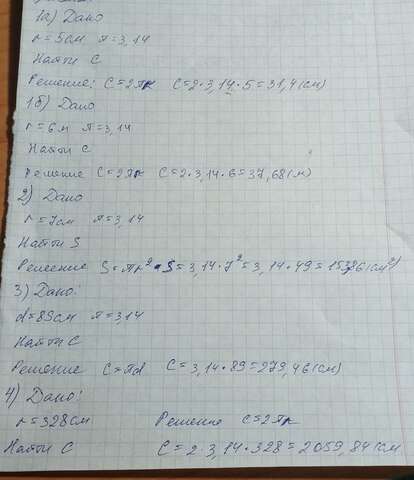 1а) Дано
r=5см π=3,14
Найти C
Решение: C=2πr C=2·3,14·5=31,4(см)
1б) Дано
r=6м π=3,14
Найти C
Решение C=2πr C=2·3,14·6=37,68(м)
2) Дано
r=7см π=3,14
Найти S
Решение S=πr² S=3,14·7²=3,14·49=153,86(см²)
3) Дано:
d=89см π=3,14
Найти C
Решение C=πd C=3,14·89=279,46(см)
4) Дано:
r=328см Решение C=2πr
Найти C C=2·3,14·328=2059,84(см